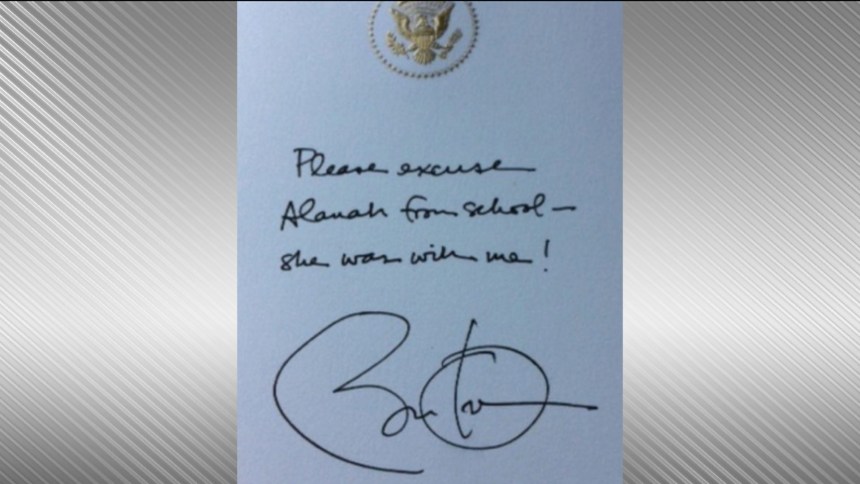 Please excuse
Alanah from school —
she was with me!